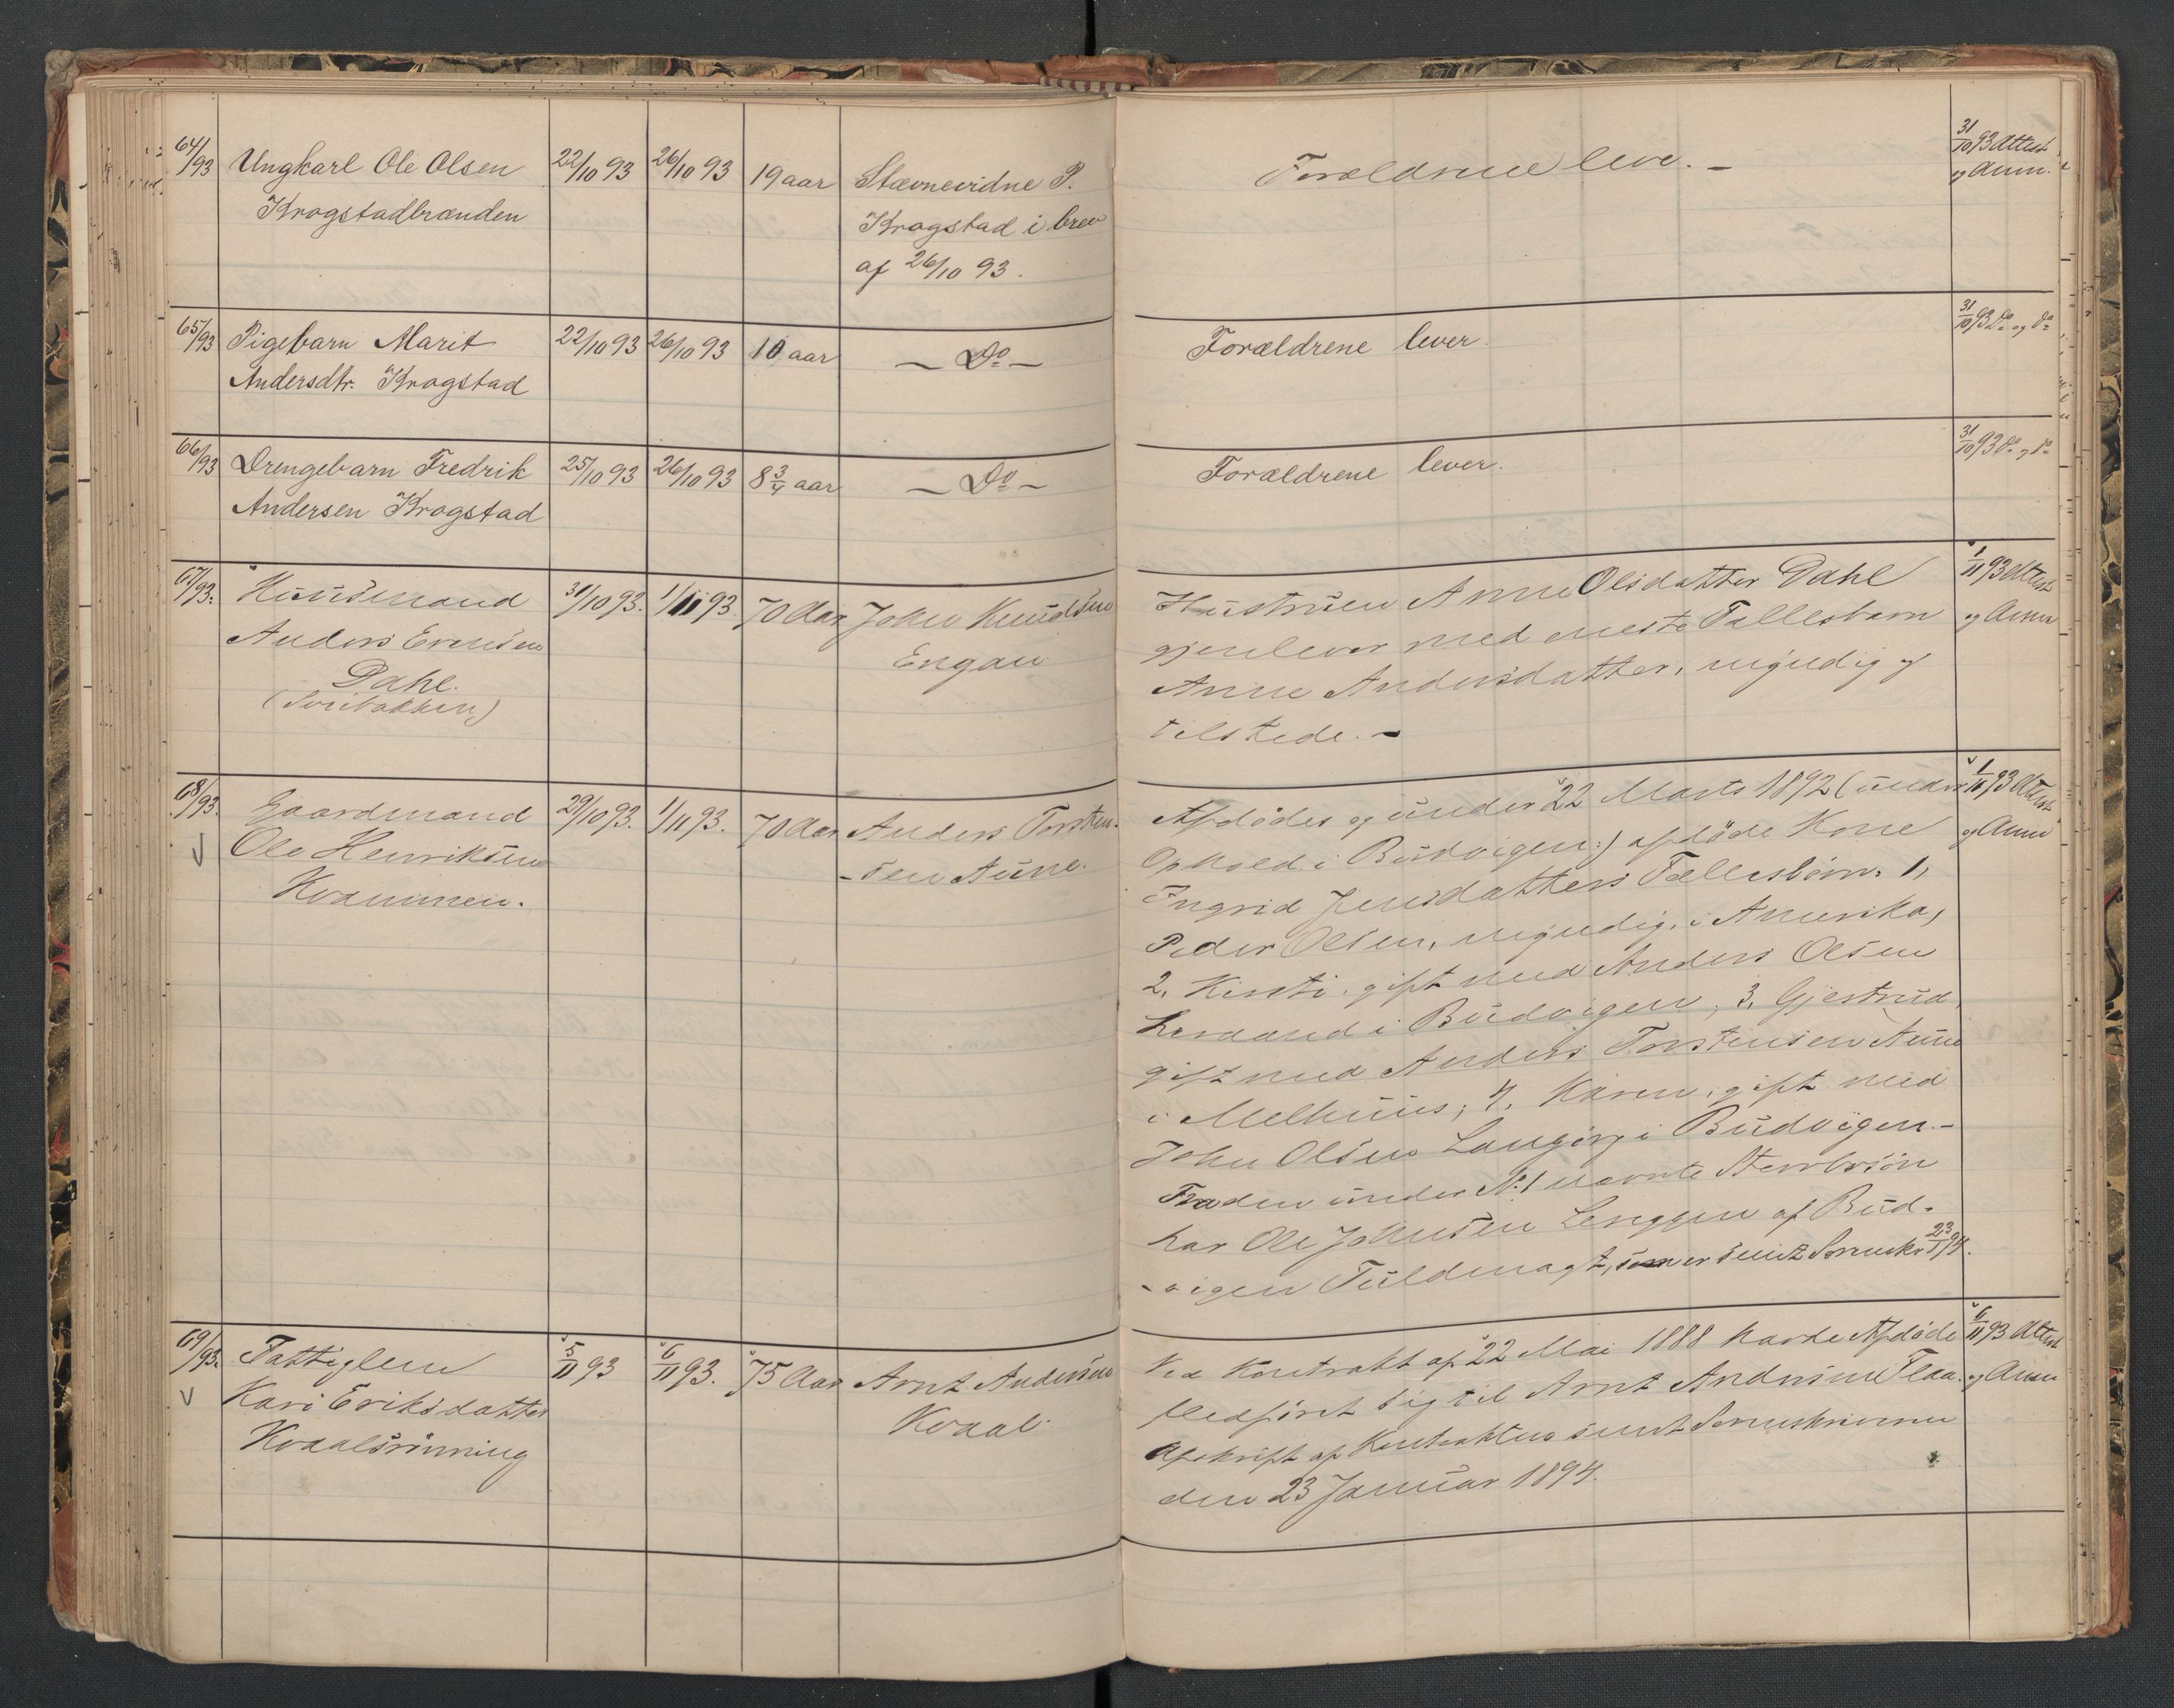 64/93 Ungkarl Ole Olsen 22/10 93 26/10 93 19 aar Stævnevidne P. Forældrene lever. – 31/10 93 Attest
Krogstadbrænden Krogstad i brev og Anm.
af 26/10 93.
65/93 Pigebarn Marit 22/10 93 26/10 93 10 aar – Do – Forældrene lever. 31/10 93 do og do
Andersdtr. Krogstad
66/93 Drengebarn Fredrik 25/10 93 26/10 93 8 3/4 aar – Do – Forældrene lever. 31/10 93 do og do
Andersen Krogstad
67/93. Huusmand 31/10 93. 1/11 93 70 Aar John Knudsen Hustruen Anne Olsdatter Dahl 1/11 93 Attest
Anders Dahl. Engan gjenlever med eneste Fællesbarn og Anm
Anne Andersdatter, myndig og
tilstede. –
68/93. Gaardmand 29/10 93. 1/11 93. 70 Aar Anders Torsten- Afdødes og under 22 Marts 1892 (under 1/11 93 Attest
Ole Henriksen -sen Aune. Ophold i Budvigen:) afdøde Kone og Anm
Kvammen. Ingrid Jensdatters Fællesbörn. 1,
Peder Olsen, myndig, i Amerika,
2, Kirsti, gift med Anders Olsen
i Budvigen, 3, Gjertrud,
gift med Anders Torstensen Aune
i Melhuus; 4, Karen, gift med
John Olsen i Budvigen. –
Fra den under No 1 nævnte
har Ole Johnsen af Bud-
-vigen Fuldmagt, som er sendt Sorenskr 23/1 94.
69/93. Fattiglem 5/11 93 6/11 93. 75 Aar Arnt Andersen Ved Kontrakt af 22 Mai 1888 havde Afdøde 6/11 93 Attest
Kari Eriksdatter Kvaal. fledført sig til Arnt Andersen Flaa. og Anm
Kvaalsrønning Afskrift af Kontrakten sendt Sorenskriveren
den 23 Januar 1894.